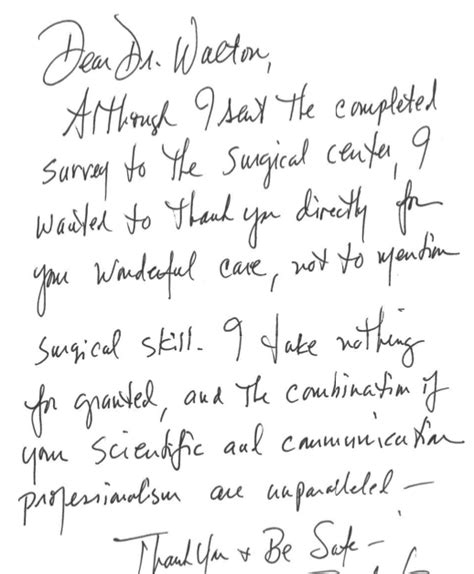 Dear Dr. Walton,
Although I sent the completed
survey to the surgical center, I
wanted to thank you directly for
your wonderful care, not to mention
surgical skill. I take nothing
for granted, and the combination of
your scientific and communication
professionalism are unparalleled —
Thank You & Be Safe —